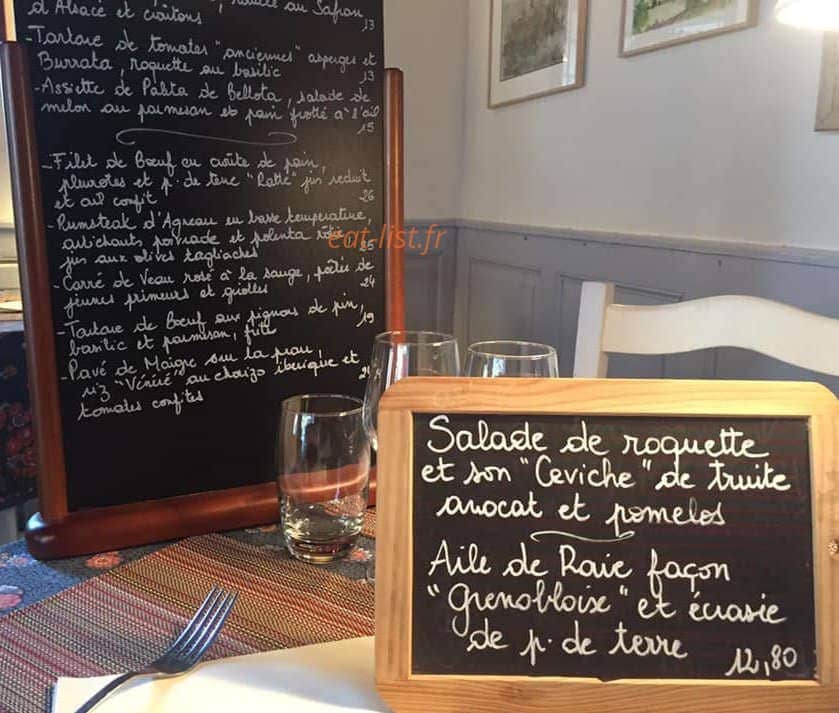 d'Alsace et croûtons
au Safran
13
-Tartare de tomates "anciennes" asperges et
Burrata, roquette au basilic
13
-Assiette de Palita de Bellota, salade de
melon au parmesan et pain frotté à l'ail
15
-Filet de Bœuf en croûte de pain,
pleurotes et p. de terre "Ratte" jus réduit
et ail confit
26
-Rumsteak d'Agneau en basse température,
artichauts poivrade et polenta rôtie
jus aux olives tagliaches
25
-Carré de Veau rosé à la sauge, poêlée de
jeunes primeurs et girolles
24
-Tartare de Bœuf aux pignons de pin,
basilic et parmesan, frites
19
-Pavé de Maigre sur la peau,
riz "Vénéré" au chorizo iberique et
tomates confites
eat-list.fr
Salade de roquette
et son "Ceviche" de truite
avocat et pomelos
Aile de Raie façon
"Grenobloise" et écrasie
de p. de terre
12,80